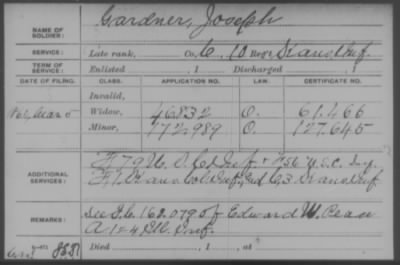 NAME OF SOLDIER: Gardner, Joseph
SERVICE: Late rank, Co. C, 10 Reg't Kans. Inf.
TERM OF SERVICE: Enlisted , 1 Discharged , 1
DATE OF FILING. CLASS. APPLICATION NO. LAW. CERTIFICATE NO.
Invalid,
Mar 5 Widow, 46832 O. 61.466
Minor, 172.989 O. 127.645
ADDITIONAL SERVICES: F. 79 U.S. Cd. Inf. + F 56 U.S.C. Inf.
F. 1 Kans. Col. Inf. and C, 3 Kans. Inf.
REMARKS: See I.C. 162.079 of Edward W.
A 124 Ill. Inf.
Died , 1 , at